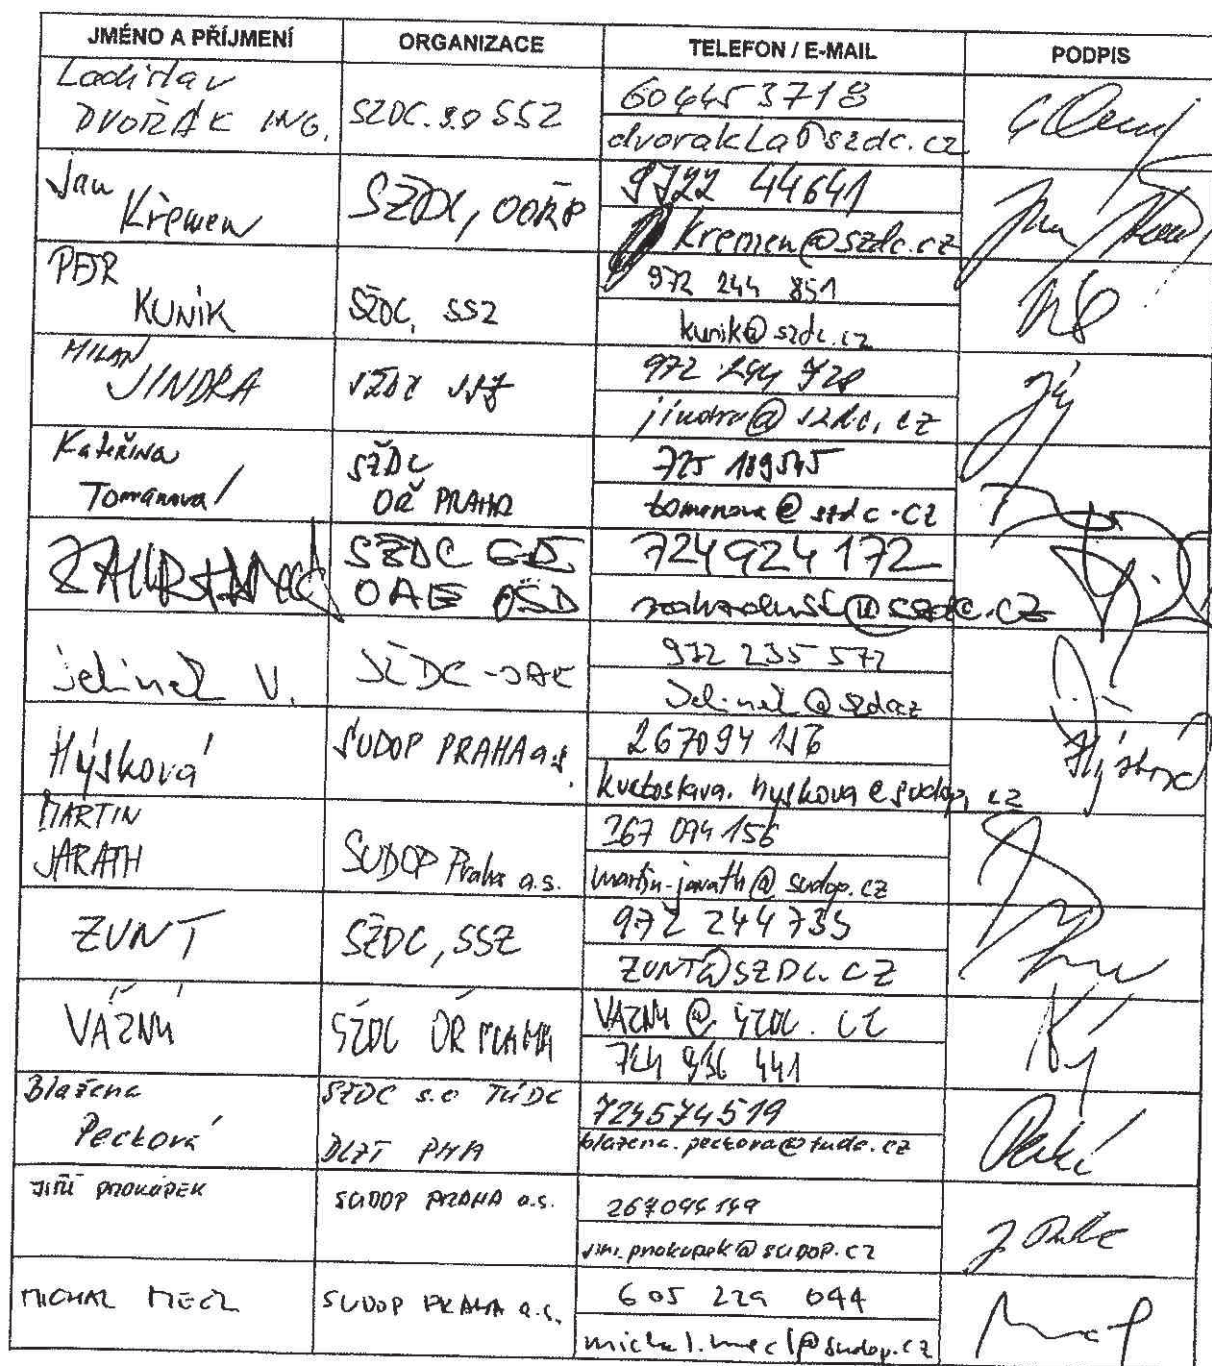 JMÉNO A PŘÍJMENÍ ORGANIZACE TELEFON / E-MAIL PODPIS
Ladislav
DVOŘÁK ING. SŽDC. s.o SSZ 604453718
dvorakLa@szdc.cz
Jan
Křemen SŽDC, OOŘP 9722 44641
kremen@szdc.cz
PETR
KUNIK SŽDC, SSZ 972 244 851
kunik@szdc.cz
MILAN
JINDRA SŽDC SSZ 972 244 728
jindra@szdc.cz
Kateřina
Tomanova SŽDC
OŘ PRAHA 725 189545
tomanova@szdc.cz
SŽDC GŘ
OAE 724924172
Jelinek V. SŽDC-OAE 972 235 572
Jelinek@szdc.cz
Hýsková SUDOP PRAHA a.s. 267094 156
kvetoslava.hyskova@sudop.cz
Hýsková
MARTIN
JARATH SUDOP Praha a.s. 267 094 156
martin.jarath@sudop.cz
ZUNT SŽDC, SSZ 972 244 735
ZUNT@SZDC.CZ
VÁZNÝ SŽDC OŘ PRAHA VAZNY@SZDC.CZ
724 936 441
Blažena
Pecková SŽDC s.o TÚDC
DLZT PHA 724574519
blazena.peckova@tudc.cz
JIŘÍ PROKŮPEK SUDOP PRAHA a.s. 267094149
jiri.prokupek@sudop.cz
MICHAL MECL SUDOP PRAHA a.s. 605 229 044
michal.mecl@sudop.cz